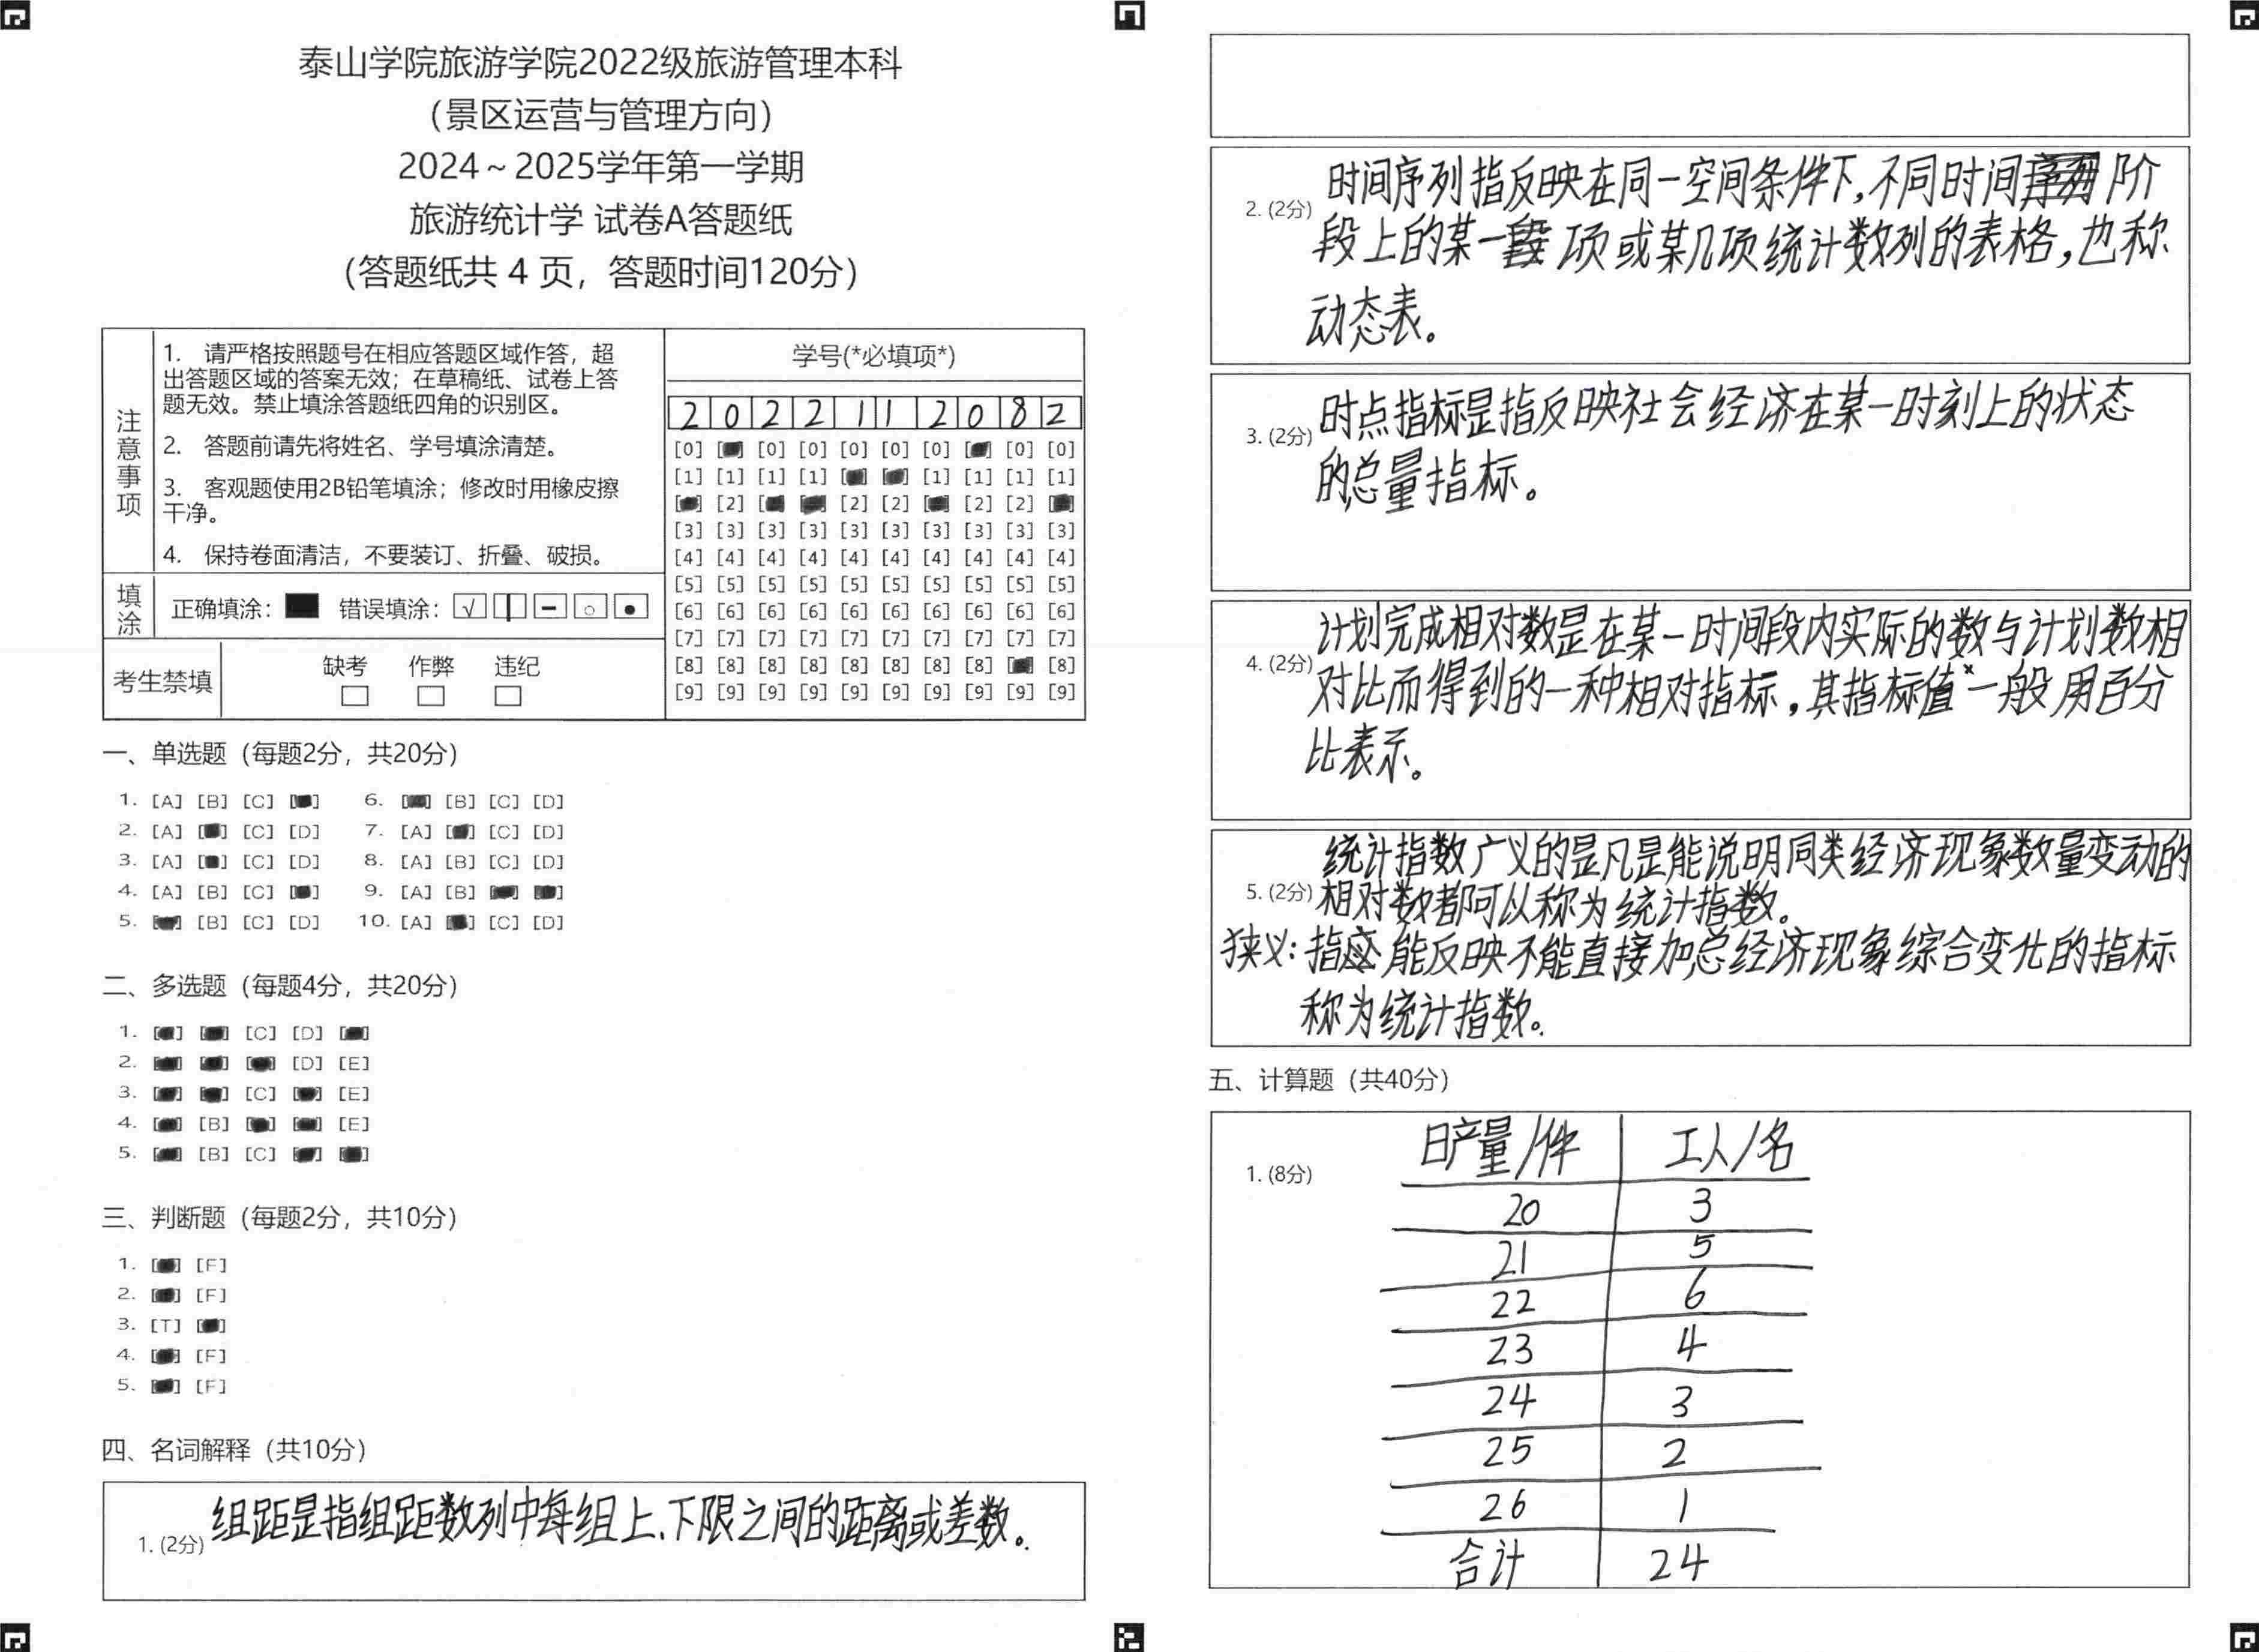 泰山学院旅游学院2022级旅游管理本科
（景区运营与管理方向）
2024～2025学年第一学期
旅游统计学 试卷A答题纸
（答题纸共 4 页，答题时间120分）
注意事项
1. 请严格按照题号在相应答题区域作答，超
出答题区域的答案无效；在草稿纸、试卷上答
题无效。禁止填涂答题纸四角的识别区。
2. 答题前请先将姓名、学号填涂清楚。
3. 客观题使用2B铅笔填涂；修改时用橡皮擦
干净。
4. 保持卷面清洁，不要装订、折叠、破损。
填涂
正确填涂： 错误填涂：
考生禁填
缺考 作弊 违纪
学号(*必填项*)
2 0 2 2 1 1 2 0 8 2
[0] [0] [0] [0] [0] [0] [0] [0]
[1] [1] [1] [1] [1] [1] [1] [1]
[2] [2] [2] [2] [2]
[3] [3] [3] [3] [3] [3] [3] [3] [3] [3]
[4] [4] [4] [4] [4] [4] [4] [4] [4] [4]
[5] [5] [5] [5] [5] [5] [5] [5] [5] [5]
[6] [6] [6] [6] [6] [6] [6] [6] [6] [6]
[7] [7] [7] [7] [7] [7] [7] [7] [7] [7]
[8] [8] [8] [8] [8] [8] [8] [8] [8]
[9] [9] [9] [9] [9] [9] [9] [9] [9] [9]
一、单选题（每题2分，共20分）
1. [A] [B] [C] 6. [B] [C] [D]
2. [A] [C] [D] 7. [A] [C] [D]
3. [A] [C] [D] 8. [A] [B] [C] [D]
4. [A] [B] [C] 9. [A] [B]
5. [B] [C] [D] 10. [A] [C] [D]
二、多选题（每题4分，共20分）
1. [C] [D]
2. [D] [E]
3. [C] [E]
4. [B] [E]
5. [B] [C]
三、判断题（每题2分，共10分）
1. [F]
2. [F]
3. [T]
4. [F]
5. [F]
四、名词解释（共10分）
1. (2分) 组距是指组距数列中每组上、下限之间的距离或差数。
时间序列指反映在同一空间条件下，不同时间阶
2. (2分)
段上的某一项或某几项统计数列的表格，也称
动态表。
时点指标是指反映社会经济在某一时刻上的状态
3. (2分)
的总量指标。
计划完成相对数是在某一时间段内实际的数与计划数相
4. (2分)
对比而得到的一种相对指标，其指标值一般用百分
比表示。
统计指数广义的是凡是能说明同类经济现象数量变动的
5. (2分) 相对数都可以称为统计指数。
狭义：指能反映不能直接加总经济现象综合变化的指标
称为统计指数。
五、计算题（共40分）
1. (8分)
日产量/件 工人/名
20 3
21 5
22 6
23 4
24 3
25 2
26 1
合计 24